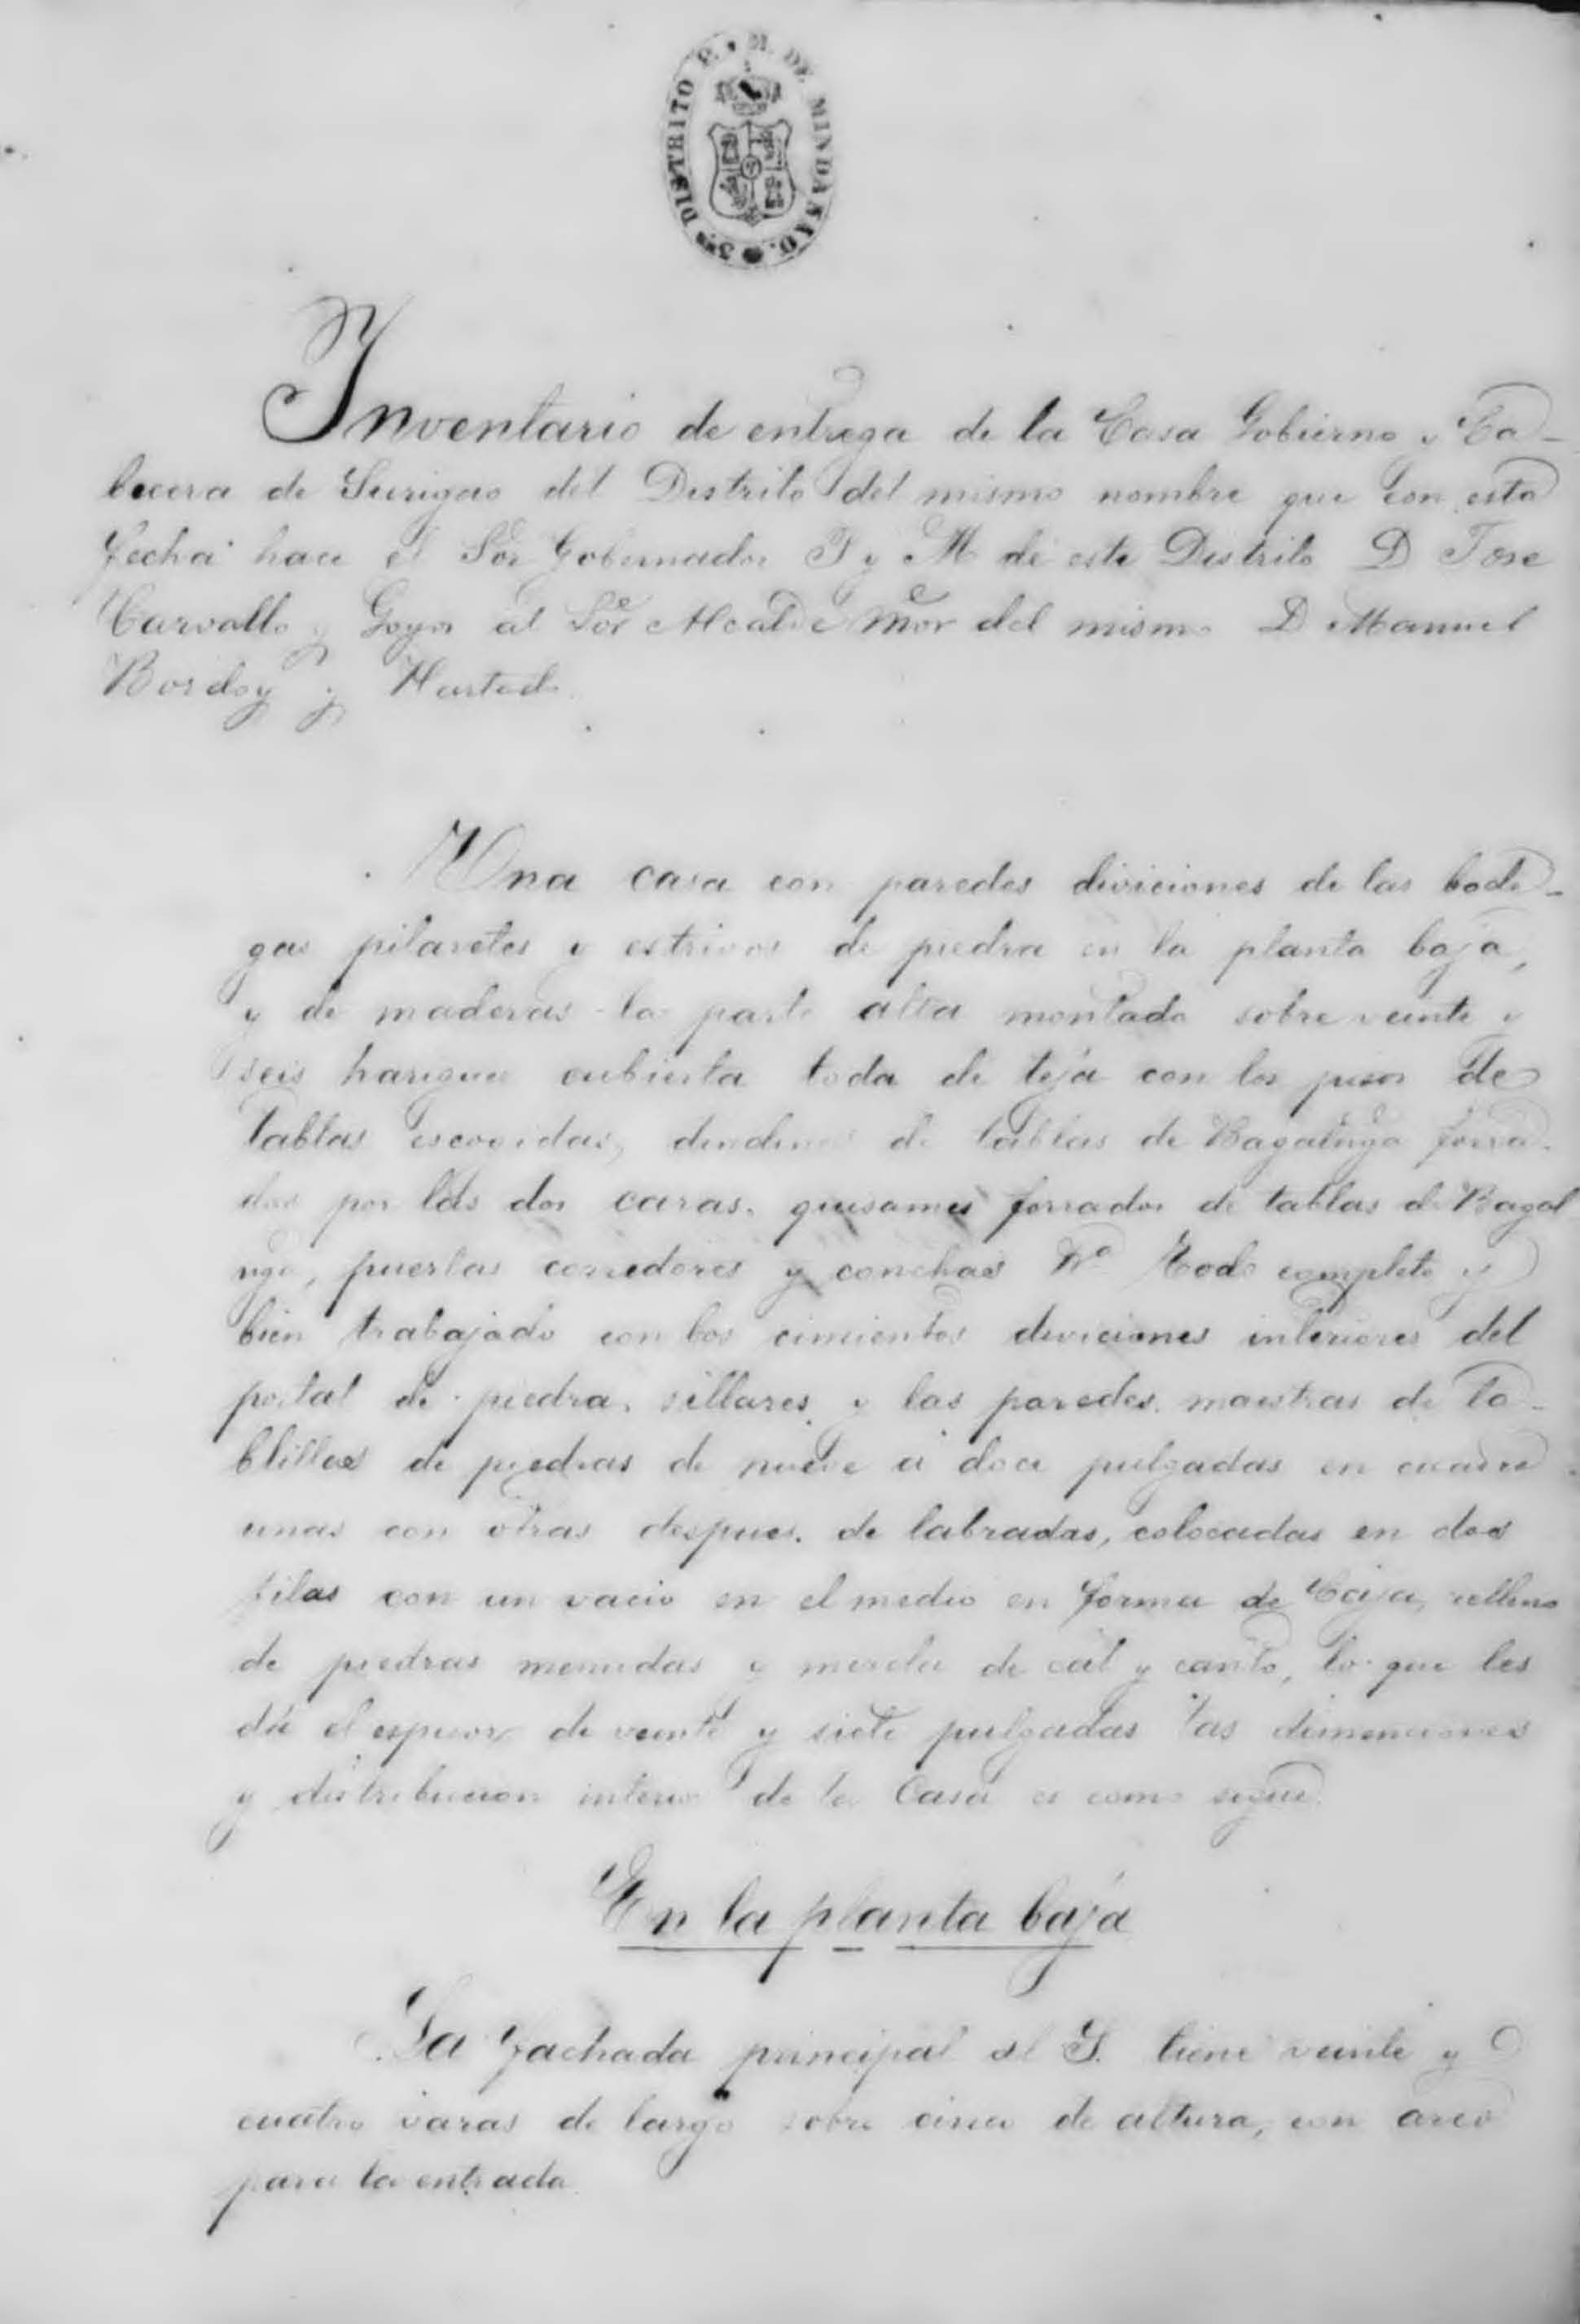 3er. DISTRITO P. M. DE MINDANAO.
Inventario de entrega de la Casa Gobierno y Ca-
becera de Surigao del Distrito del mismo nombre que con esta
fecha hace el Sor Gobernador P y M de este Distrito D Jose
Carvallo y Goyos al Sor Alcalde Mor del mismo D Manuel
Bordoy y Hurtado.
Una casa con paredes diviciones de las bode-
gas pilaretes y estrivos de piedra en la planta baja,
y de maderas la parte alta montada sobre veinte y
seis harigues cubierta toda de teja con los pisos de
tablas escogidas, de tablas de forra-
dos por las dos caras, quisames forrados de tablas de Bagal
nga, puertas corredores y conchas Todo completo y
bien trabajado con los cimientos diviciones interiores del
portal de piedra, sillares y las paredes maestras de ta-
blillas de piedras de nueve á doce pulgadas en cuadro
unas con otras despues de labradas, colocadas en dos
filas con un vacio en el medio en forma de Caja, relleno
de piedras menudas y mescla de cal y canto, lo que les
dá el espesor de veinte y siete pulgadas las dimenciones
y distribucion interior de la Casa es como sigue.
En la planta baja
La fachada principal al S. tiene veinte y
cuatro varas de largo sobre cinco de altura, con arco
para la entrada